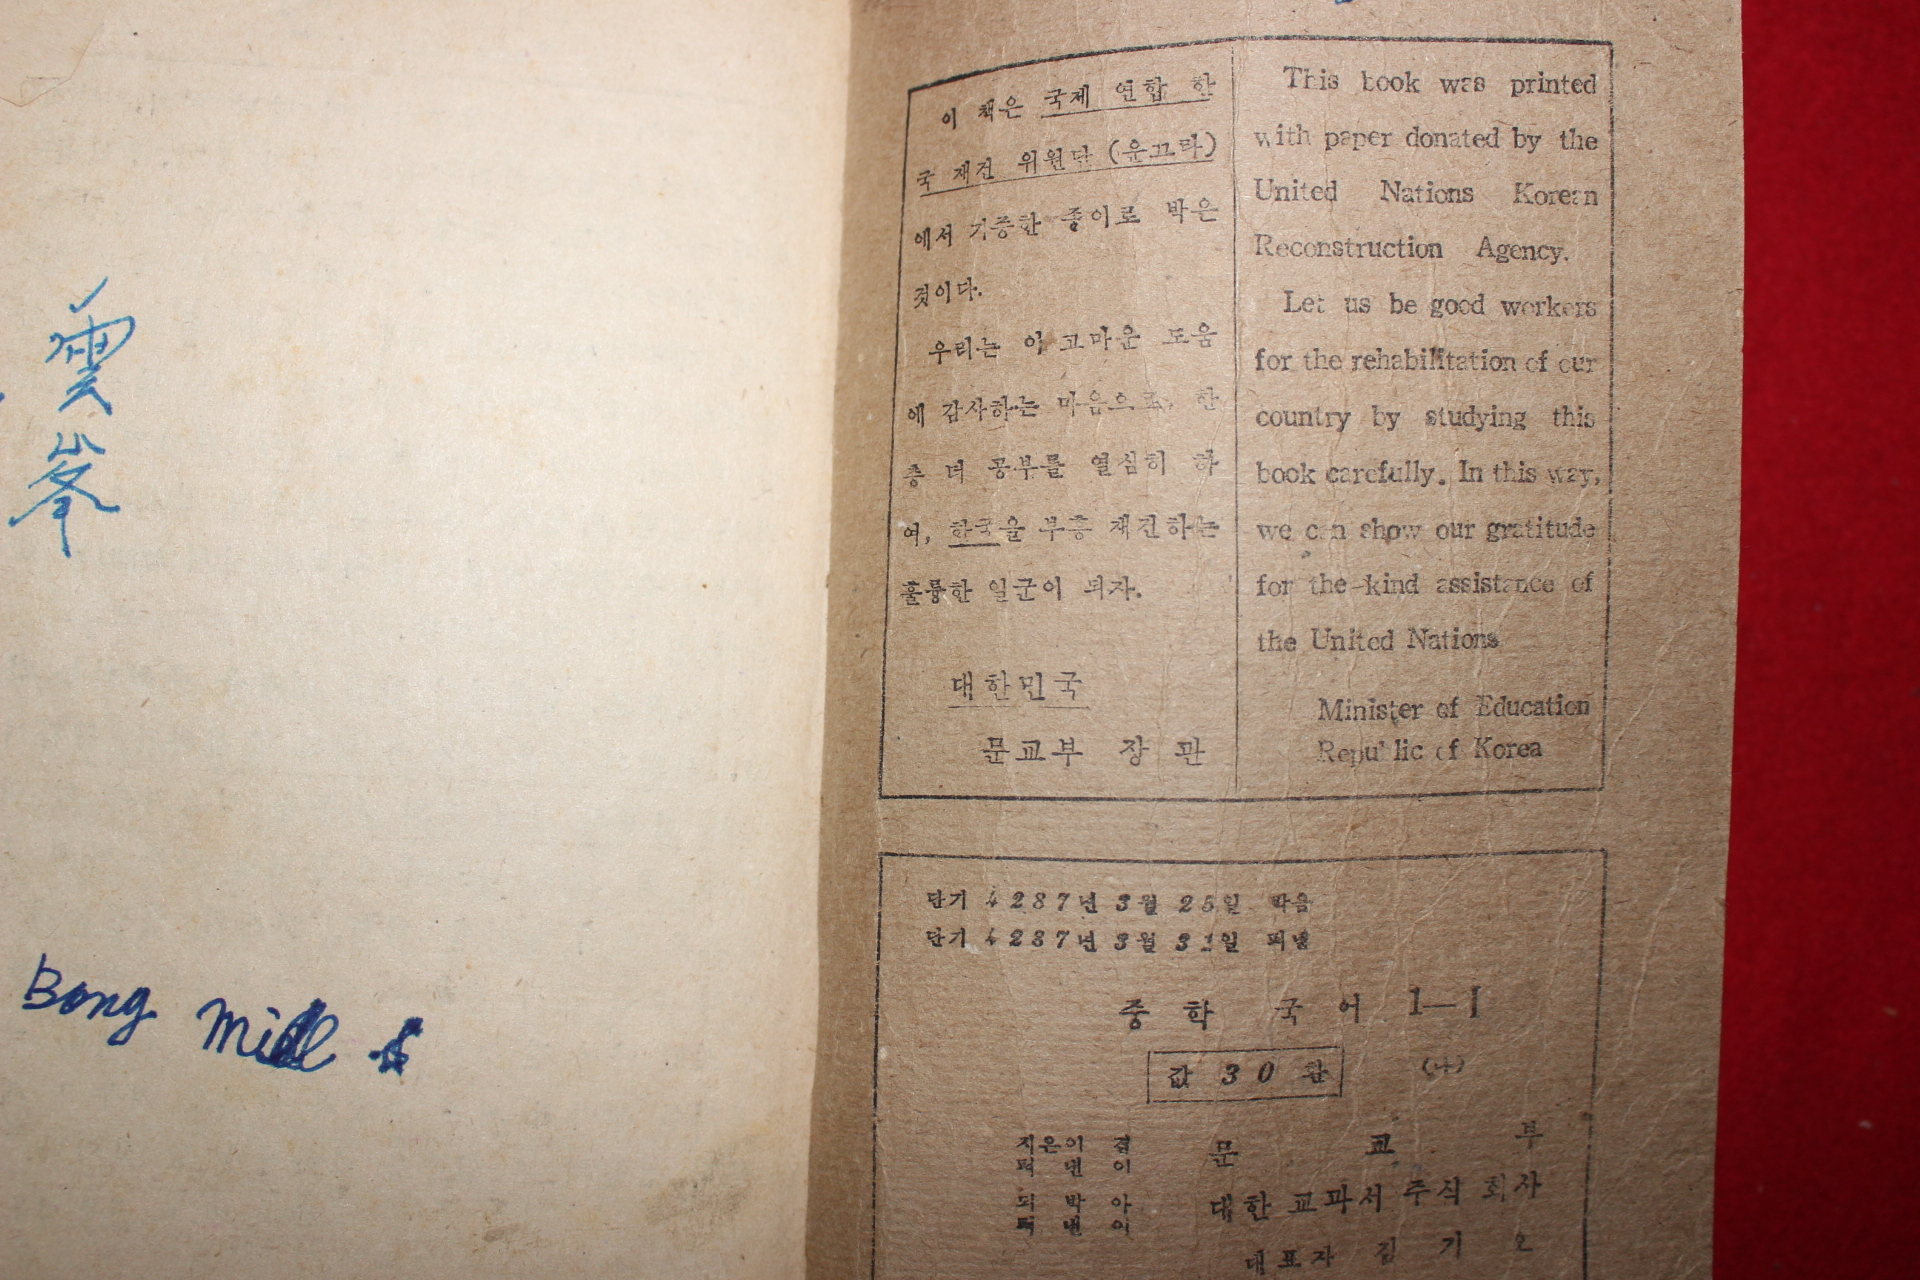 雲
峯
Bong
이 책은 국제 연합 한
국 재건 위원단 (운끄라)
에서 기증한 종이로 박은
것이다.
우리는 이 고마운 도움
에 감사하는 마음으로, 한
층 더 공부를 열심히 하
여, 한국을 부흥 재건하는
훌륭한 일군이 되자.
대한민국
문교부 장관
This book was printed
with paper donated by the
United Nations Korean
Reconstruction Agency.
Let us be good workers
for the rehabilitation of our
country by studying this
book carefully. In this way,
we can show our gratitude
for the kind assistance of
the United Nations
Minister of Education
Republic of Korea
단기 4287년 3월 25일 박음
단기 4287년 3월 31일 펴냄
중학 국어 1—I
값 30환
지은이 겸
펴낸이
문교부
되박아
펴낸이
대한 교과서 주식 회사
대표자 김기오